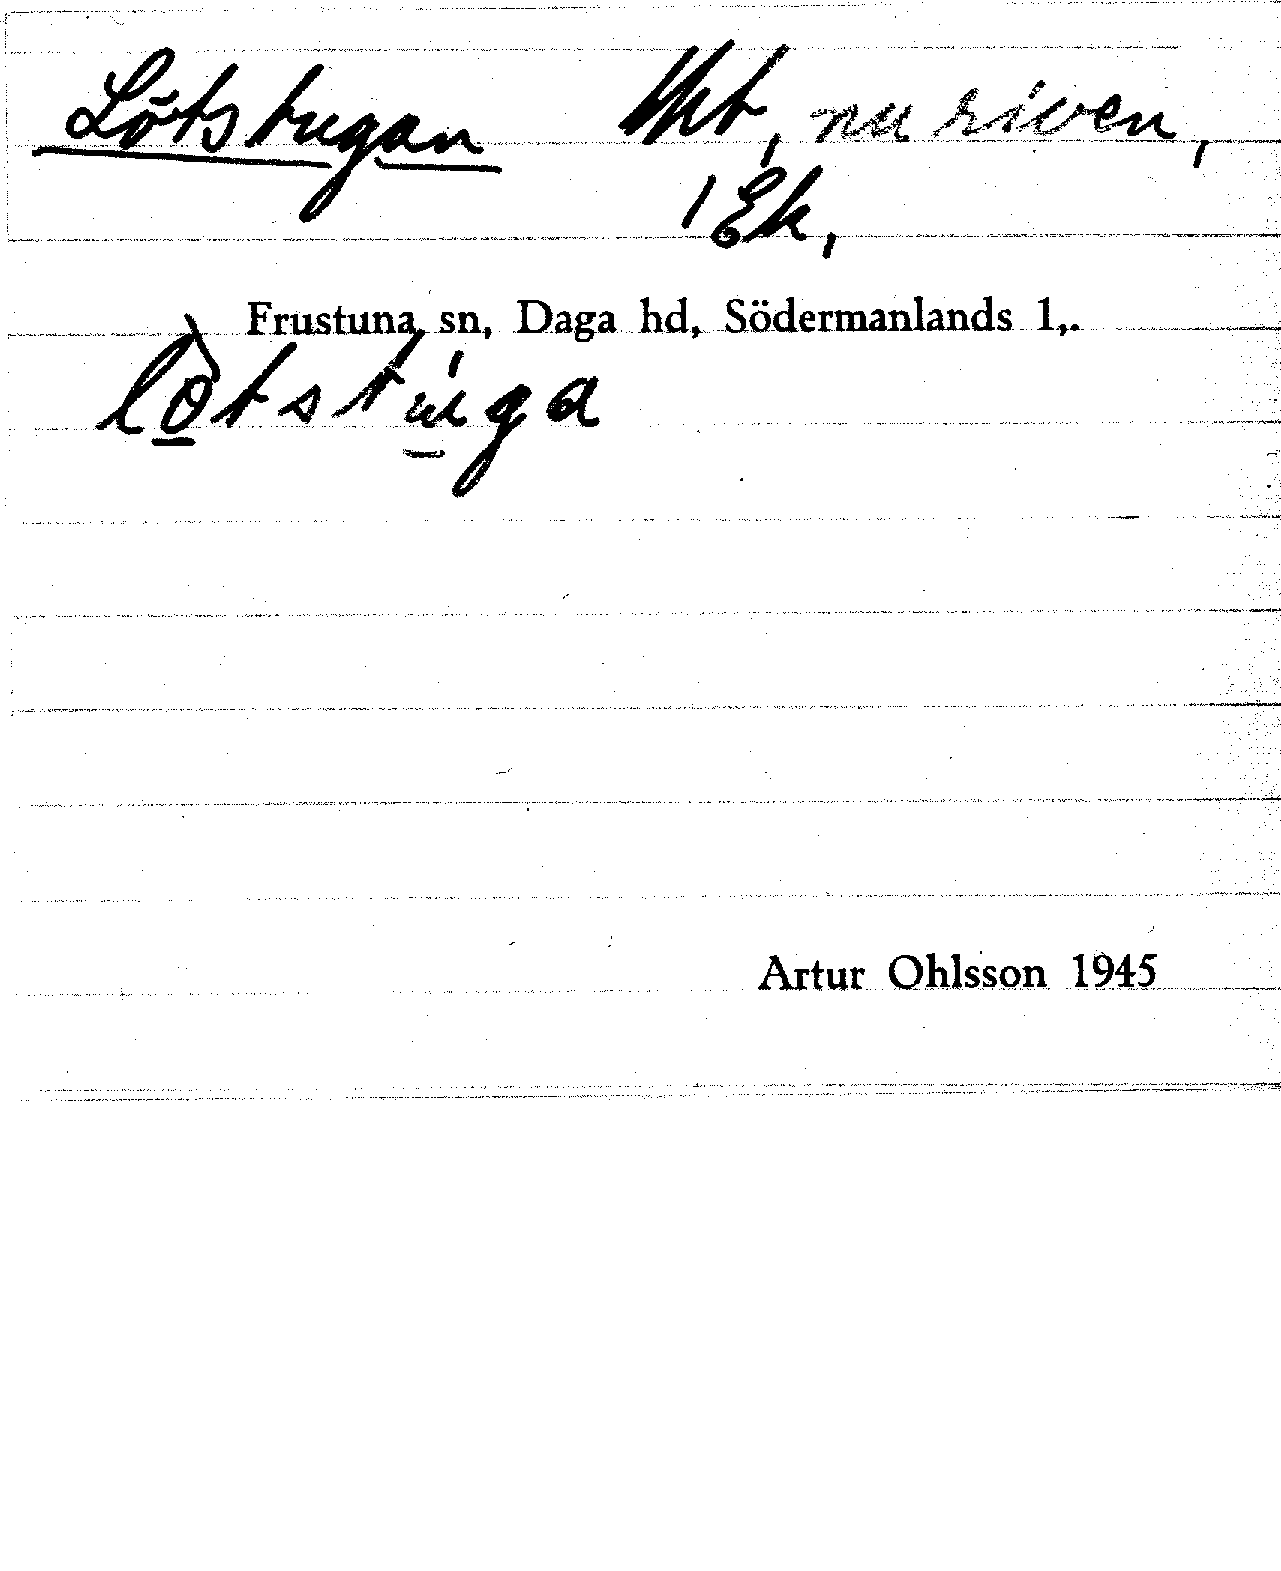 Lötstugan tpt, nu riven,
1 Ek,
Frustuna sn, Daga hd, Södermanlands l,.
lò̱tstú̱ga
Artur Ohlsson 1945